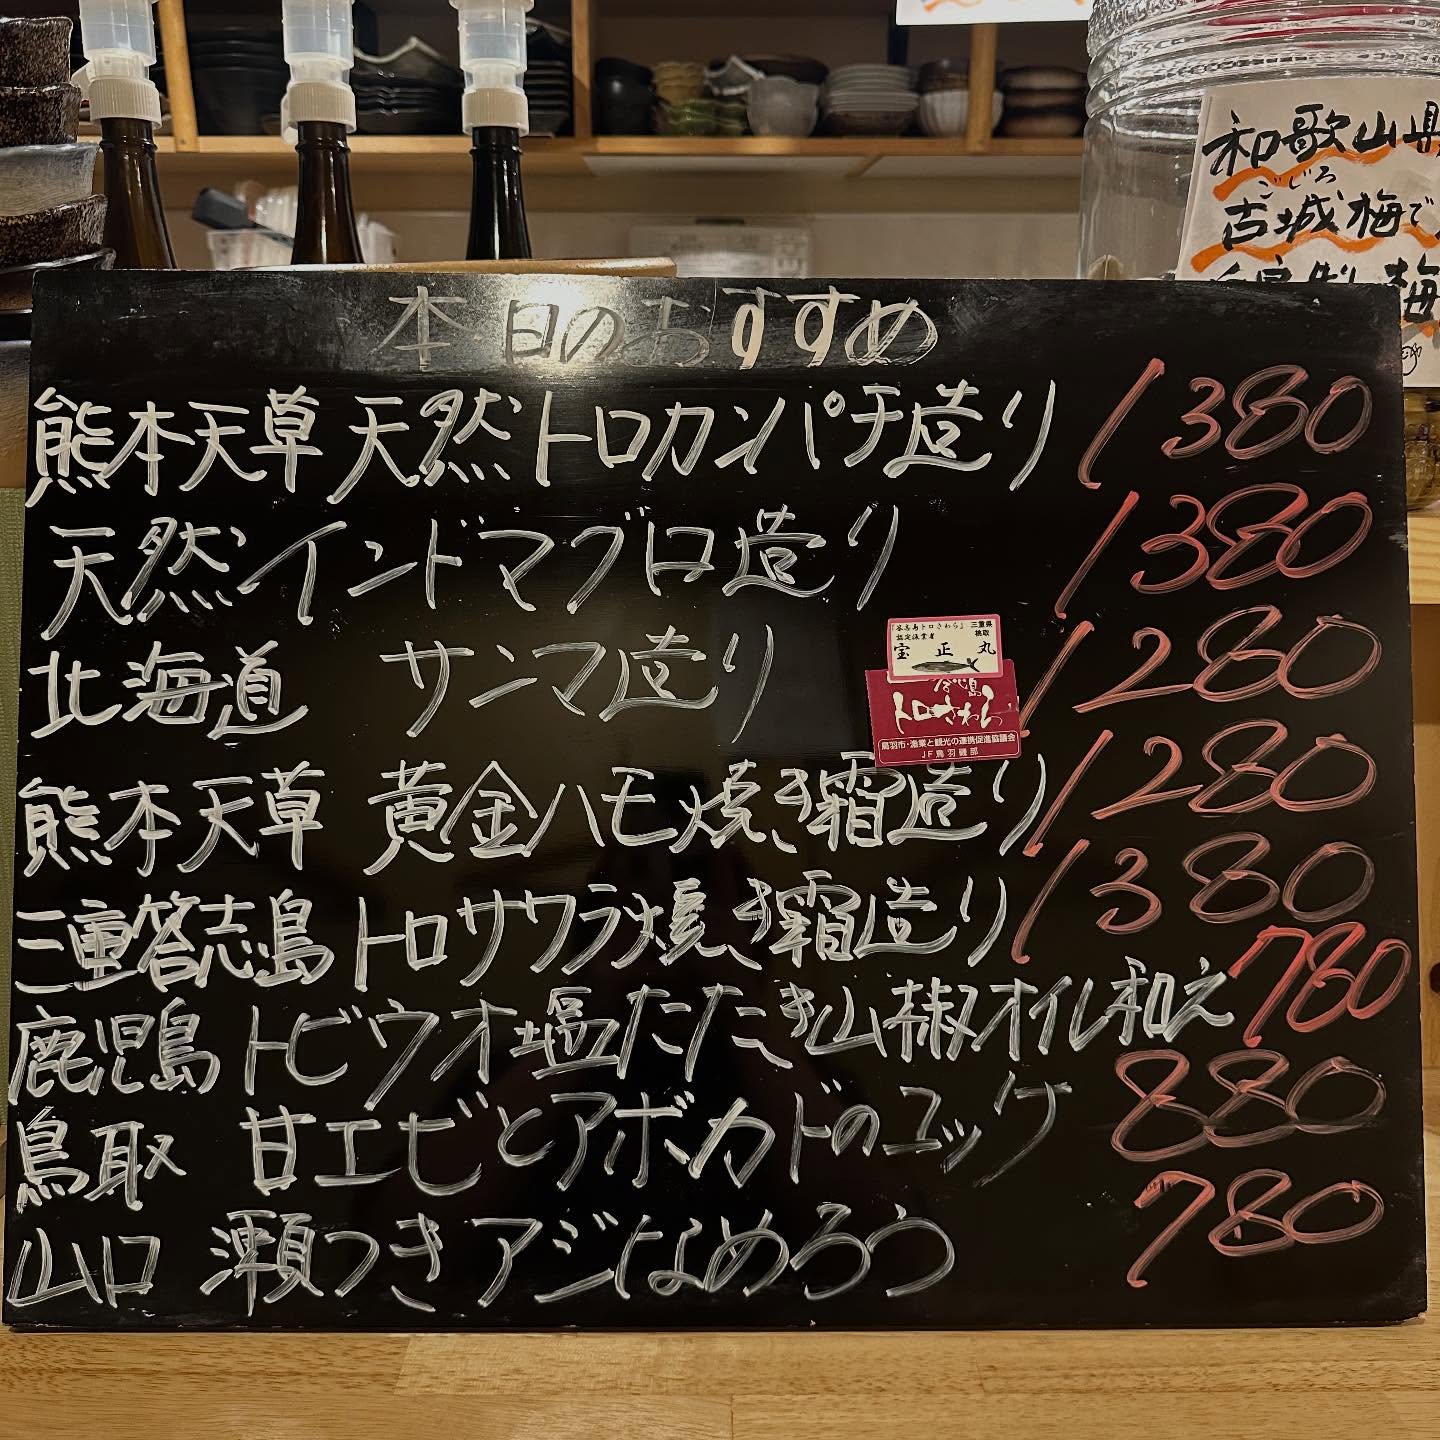 和歌山県
ごじろ
古城梅で
自家製梅
本日のおすすめ
熊本天草 天然トロカンパチ造り 1380
天然インドマグロ造り 1380
北海道 サンマ造り 1280
「答志島トロさわら」 三重県
認定漁業者 桃取
宝正丸
答志島
トロさわら
鳥羽市・漁業と観光の連携促進協議会
JF鳥羽磯部
熊本天草 黄金ハモ焼き霜造り 1280
三重答志島 トロサワラ焼き霜造り 1380
鹿児島 トビウオ塩たたき山椒オイル和え 780
鳥取 甘エビとアボカドのユッケ 880
山口 瀬つきアジなめろう 780